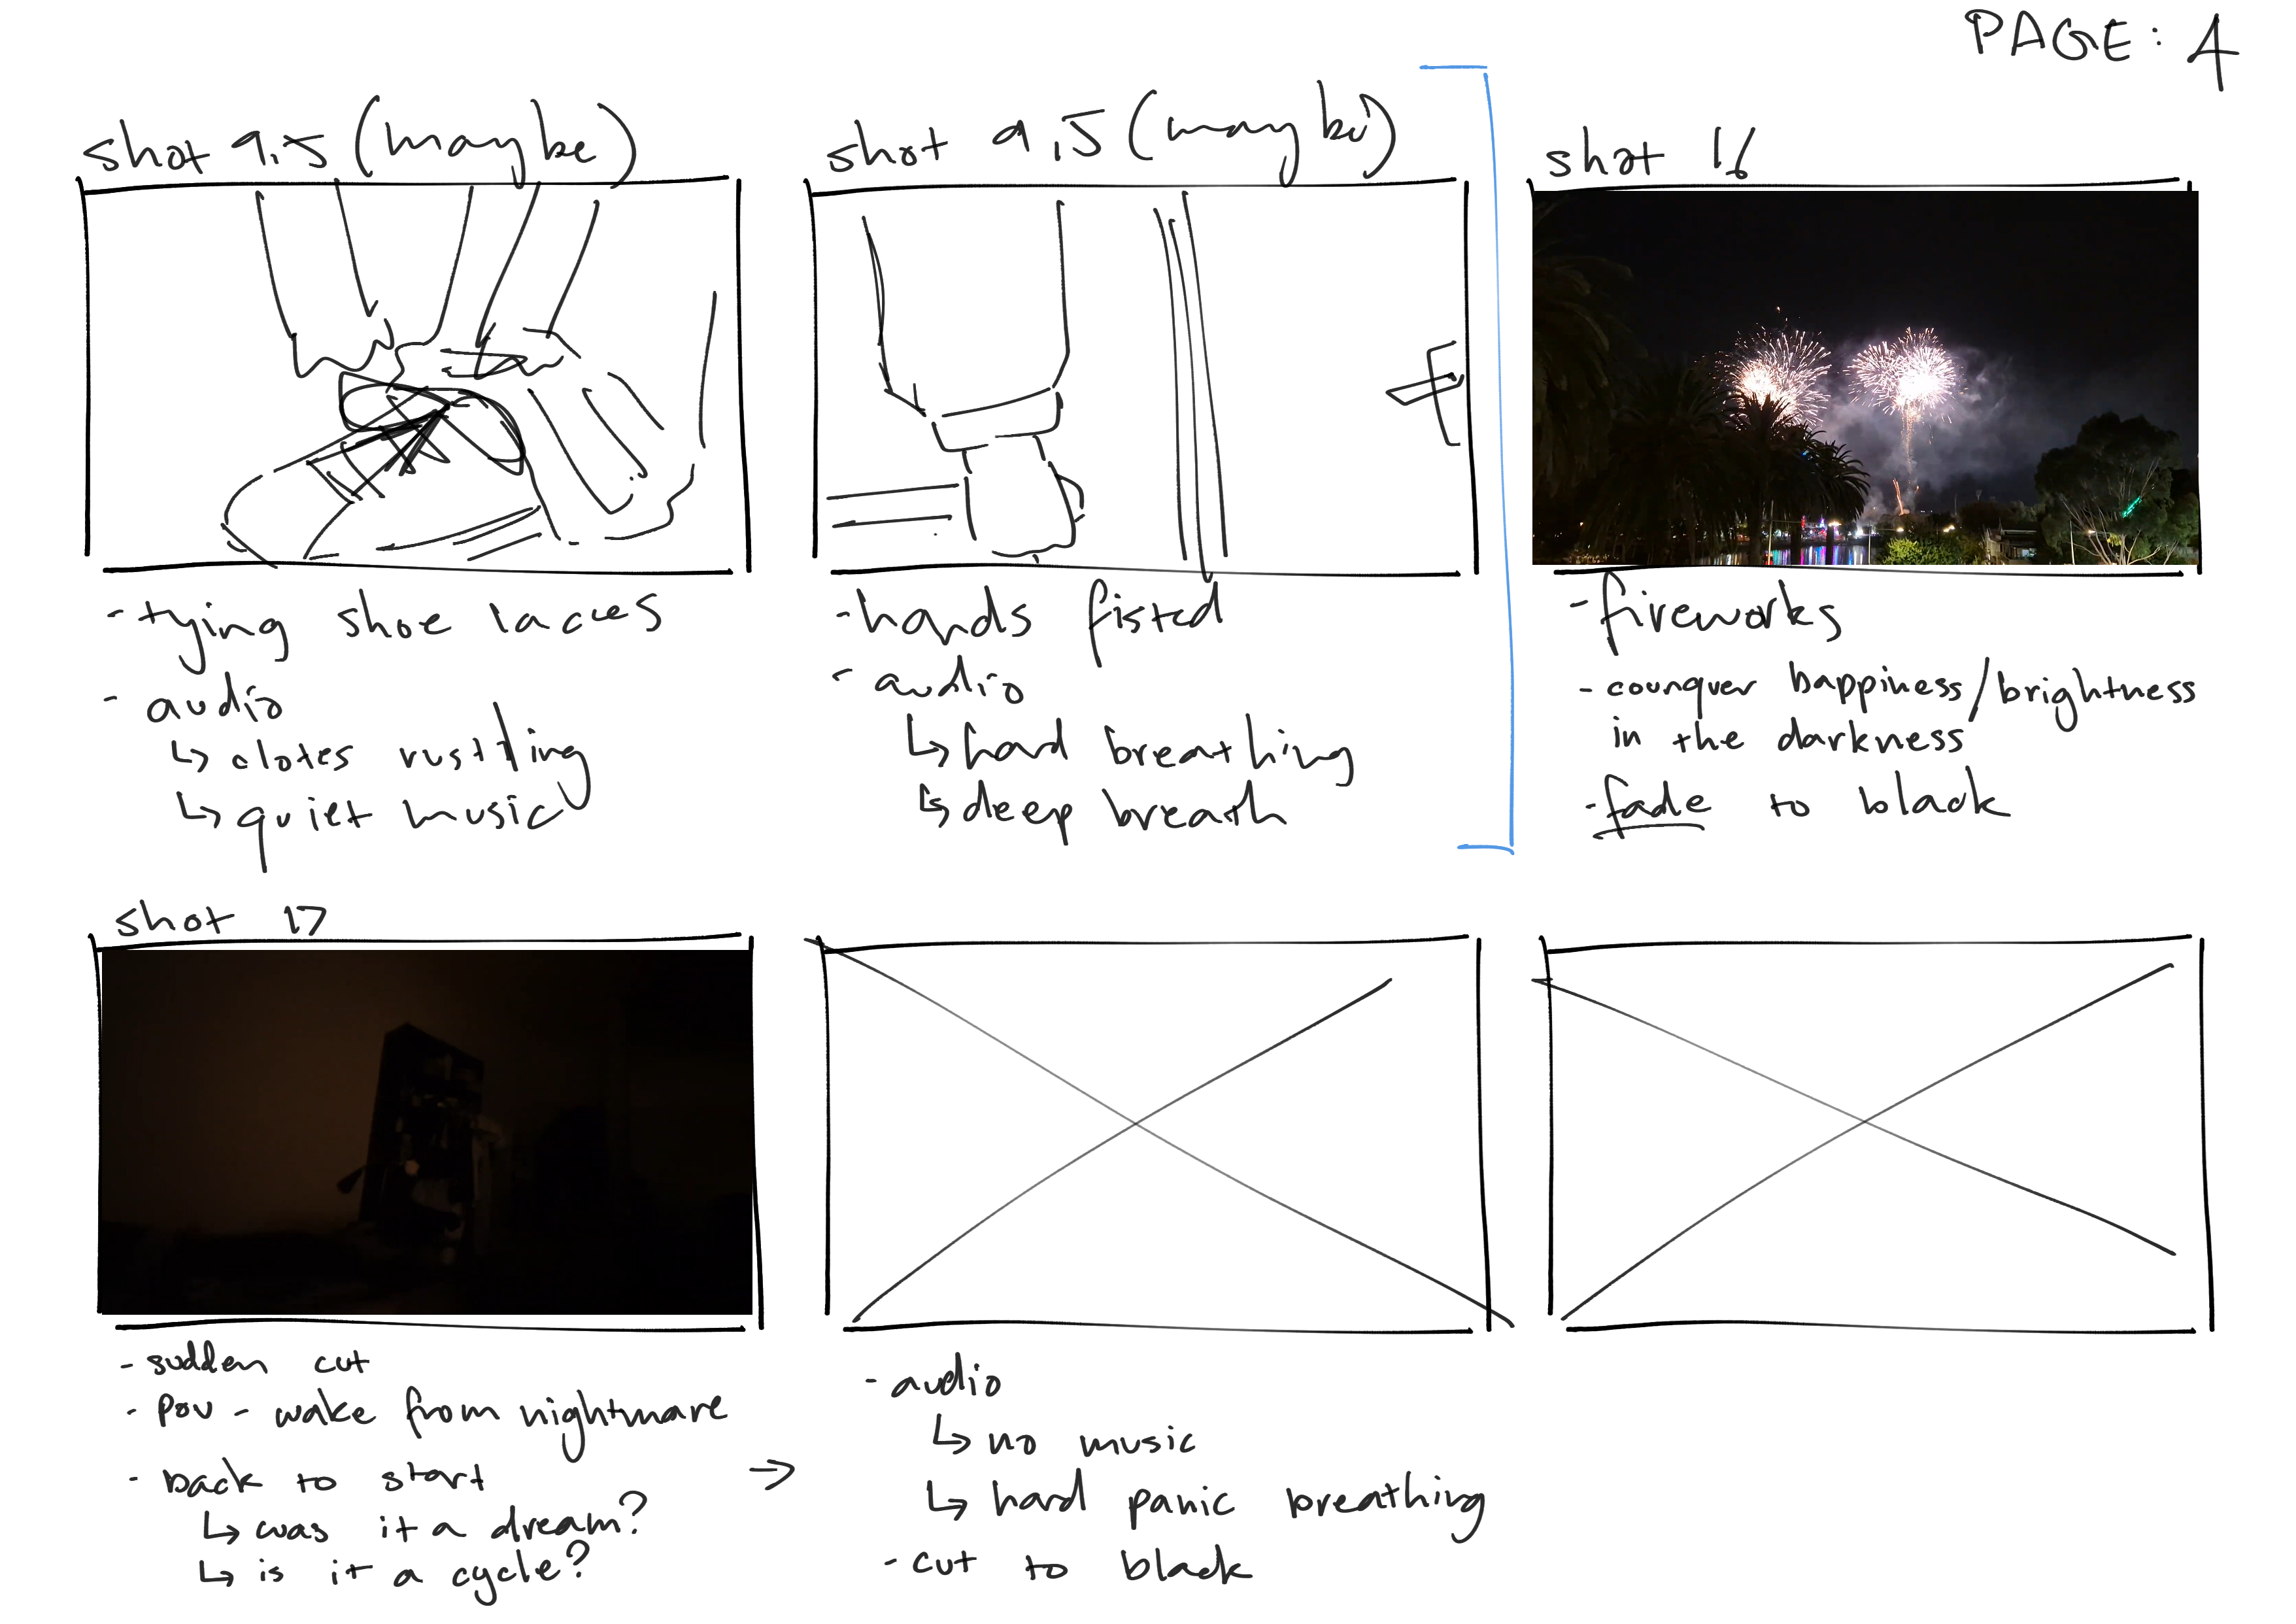 PAGE: 4
shot 9.5 (maybe)
- tying shoe lacces
- audio
↳ clotes rustling
↳ quiet music
shot 9.5 (maybe)
- hands fisted
- audio
↳ hard breathing
↳ deep breath
shot 16
- fireworks
- counquer happiness/brightness
in the darkness
- fade to black
shot 17
- sudden cut
- pov - wake from nightmare
- back to start →
↳ was it a dream?
↳ is it a cycle?
- audio
↳ no music
↳ hard panic breathing
- cut to black